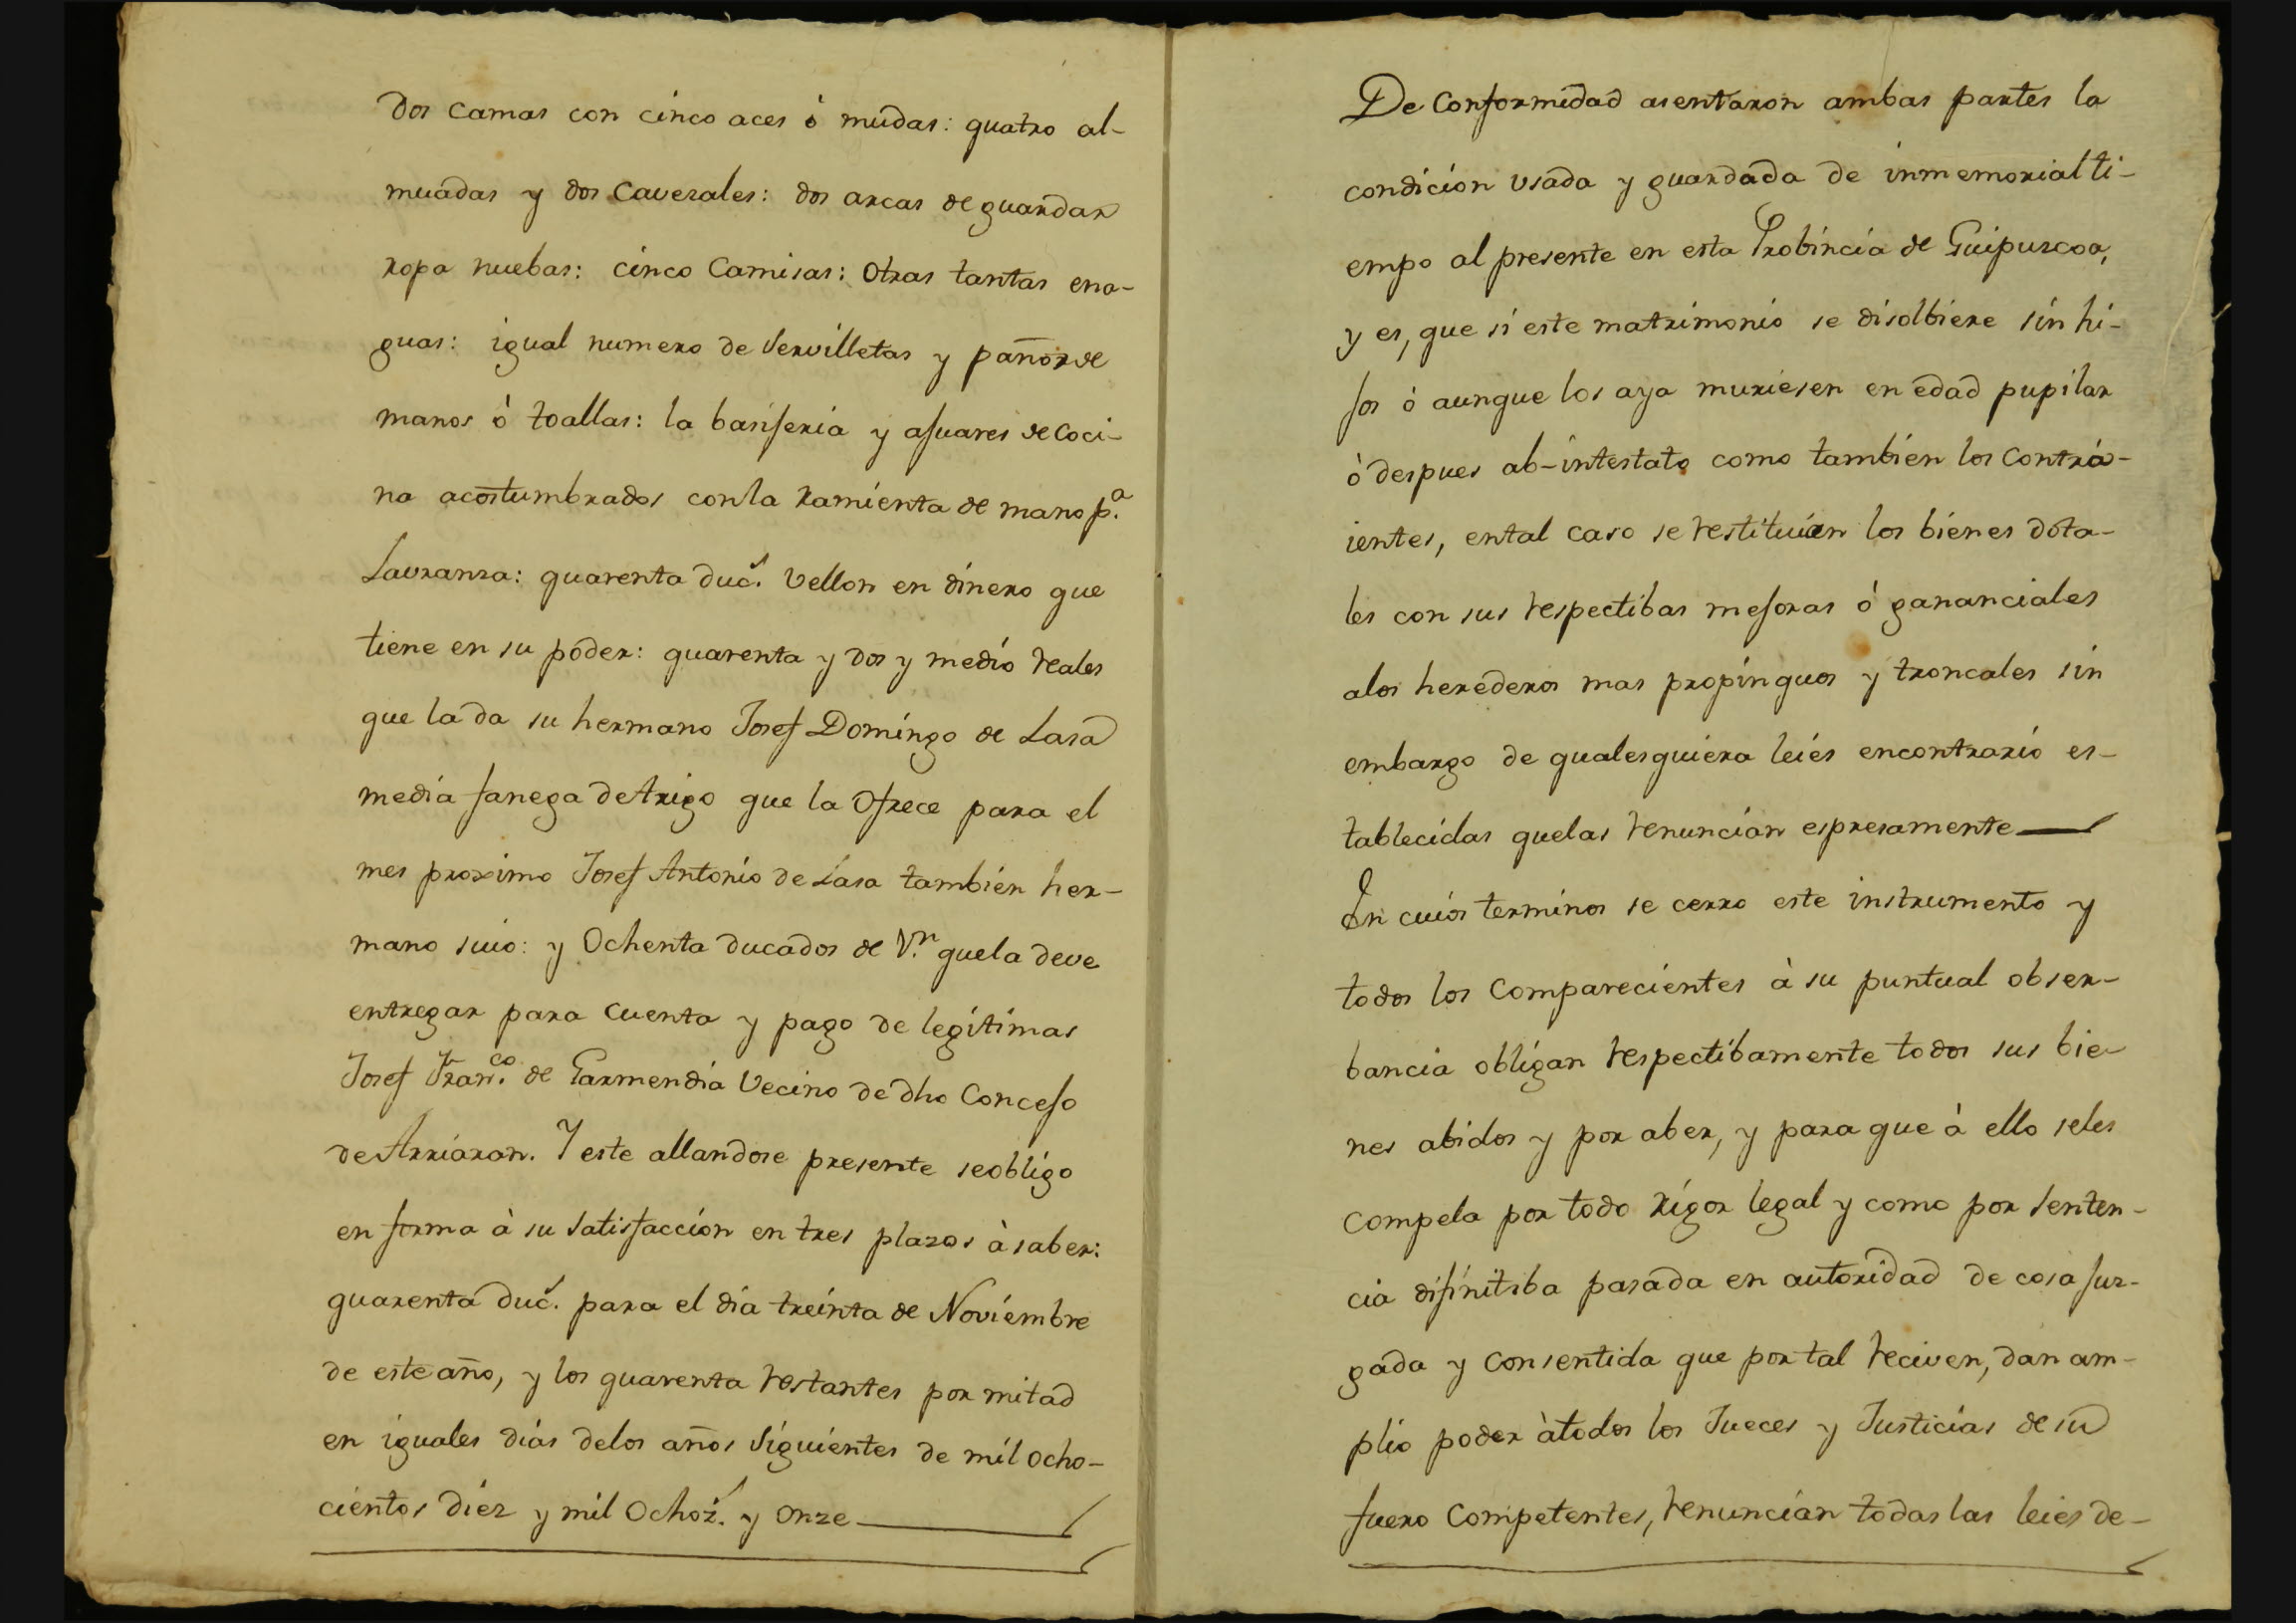 dos camas con cinco aces ò mudas: quatro al-
muadas y dos Caverales: dos arcas de guardar
ropa nuebas: cinco Camisas: Otras tantas ena-
guas: igual numero de Servilletas y paños de
manos ò toallas: la bajiseria y ajuares de Coci-
na acostumbrados con la ramienta de mano p.ª
Lavranza: quarenta duc.s Vellon en dinero que
tiene en su poder: quarenta y dos y medio reales
que la da su hermano Josef Domingo de Lasa
media fanega de trigo que la Ofrece para el
mes proximo Josef Antonio de Lasa tambien her-
mano suio: y Ochenta ducados de V.n que la deve
entregar para Cuenta y pago de legitimas
Josef Fran.co de Garmendia Vecino de dho Concejo
de Arriaran. Y este allandose presente se obligo
en forma à su Satisfaccion en tres plazos à saber:
quarenta duc.s para el dia treinta de Noviembre
de este año, y los quarenta restantes por mitad
en iguales dias de los años Siguientes de mil ocho-
cientos diez y mil Ochoz.s y Onze
De Conformidad asentaron ambas partes la
condicion usada y guardada de inmemorial ti-
empo al presente en esta Probincia de Guipuzcoa,
y es, que si este matrimonio se disolbiere sin hi-
jos ò aunque los aya muriesen en edad pupilar
ò despues ab-intestato como tambien los Contra-
ientes, en tal caso se restituian los bienes dota-
les con sus respectibas mejoras ò gananciales
a los herederos mas propinquos y troncales sin
embargo de qualesquiera leies en contrario es-
tablecidas que las renuncian espresamente
En cuios terminos se cerro este instrumento y
todos los Comparecientes à su puntual obser-
bancia obligan respectibamente todos sus bie-
nes abidos y por aber, y para que à ello se les
compela por todo rigor legal y como por Senten-
cia difinitiba pasada en autoridad de cosa juz-
gada y Consentida que por tal reciven, dan am-
plio poder à todos los Jueces y Justicias de su
fuero Competentes, renuncian todas las leies de-